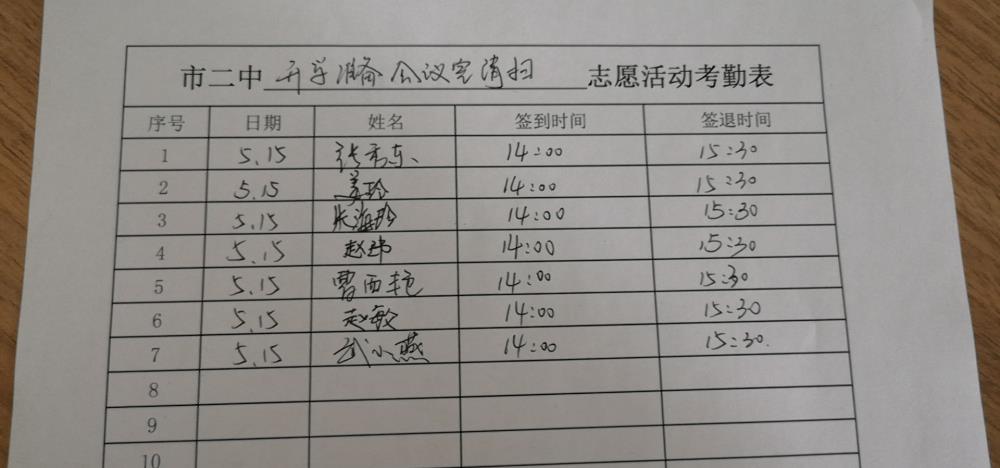 市二中 开学准备 会议室清扫 志愿活动考勤表
序号 日期 姓名 签到时间 签退时间
1 5.15 14:00 15:30
2 5.15 姜玲 14:00 15:30
3 5.15 张海玲 14:00 15:30
4 5.15 赵玮 14:00 15:30
5 5.15 曹西艳 14:00 15:30
6 5.15 赵敏 14:00 15:30
7 5.15 武小燕 14:00 15:30.
8
9
10